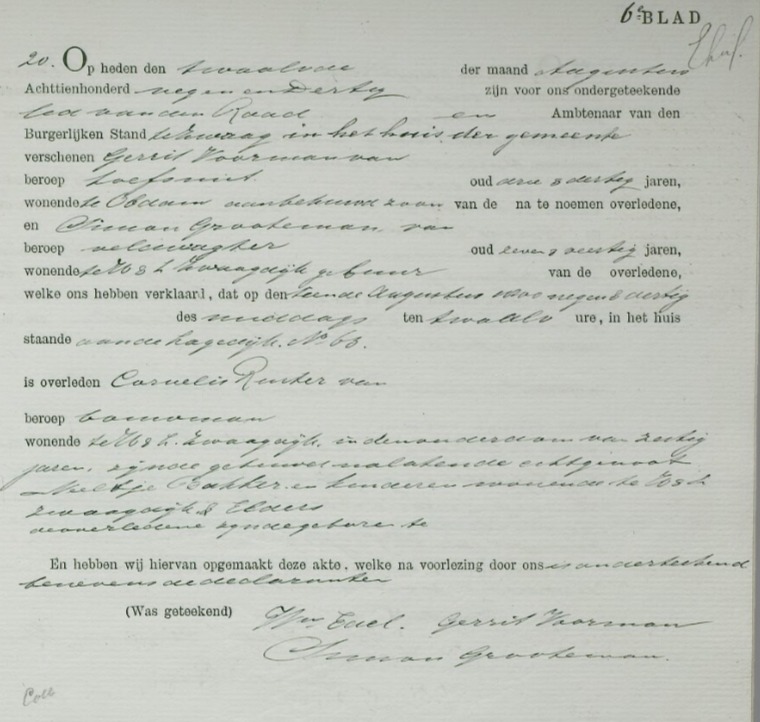 6e BLAD
20. Op heden den twaalvde der maand Augustus
Achttienhonderd negen en Dertig zijn voor ons ondergeteekende
Led van den Raad en Ambtenaar van den
Burgerlijken Stand te Zwaag in het huis der gemeente
verschenen Gerrit Voorman van
beroep hoefsmit oud drie & dertig jaren,
wonende te Obdam aanbehuwd zoon van de na te noemen overledene,
en Simon Grooteman van
beroep veldwagter oud zeven & veertig jaren,
wonende te W & h Zwaagdijk gebuur van de overledene,
welke ons hebben verklaard, dat op den tiende Augustus 1800 negen & dertig
des middags ten twaalv ure, in het huis
staande aan de hagedijk No 63.
is overleden Cornelis Ruiter van
beroep bouwman
wonende te W & h. Zwaagdijk, in den ouderdom van zestig
jaren, zijnde gehuwd nalatende echtgenoot
Neeltje Bakker en kinderen wonende te W & h
Zwaagdijk & Elders
de overledene zijnde geboren te
En hebben wij hiervan opgemaakt deze akte, welke na voorlezing door ons is onderteekend
benevens de declaranten
(Was geteekend) Gerrit Voorman
Simon Grooteman.